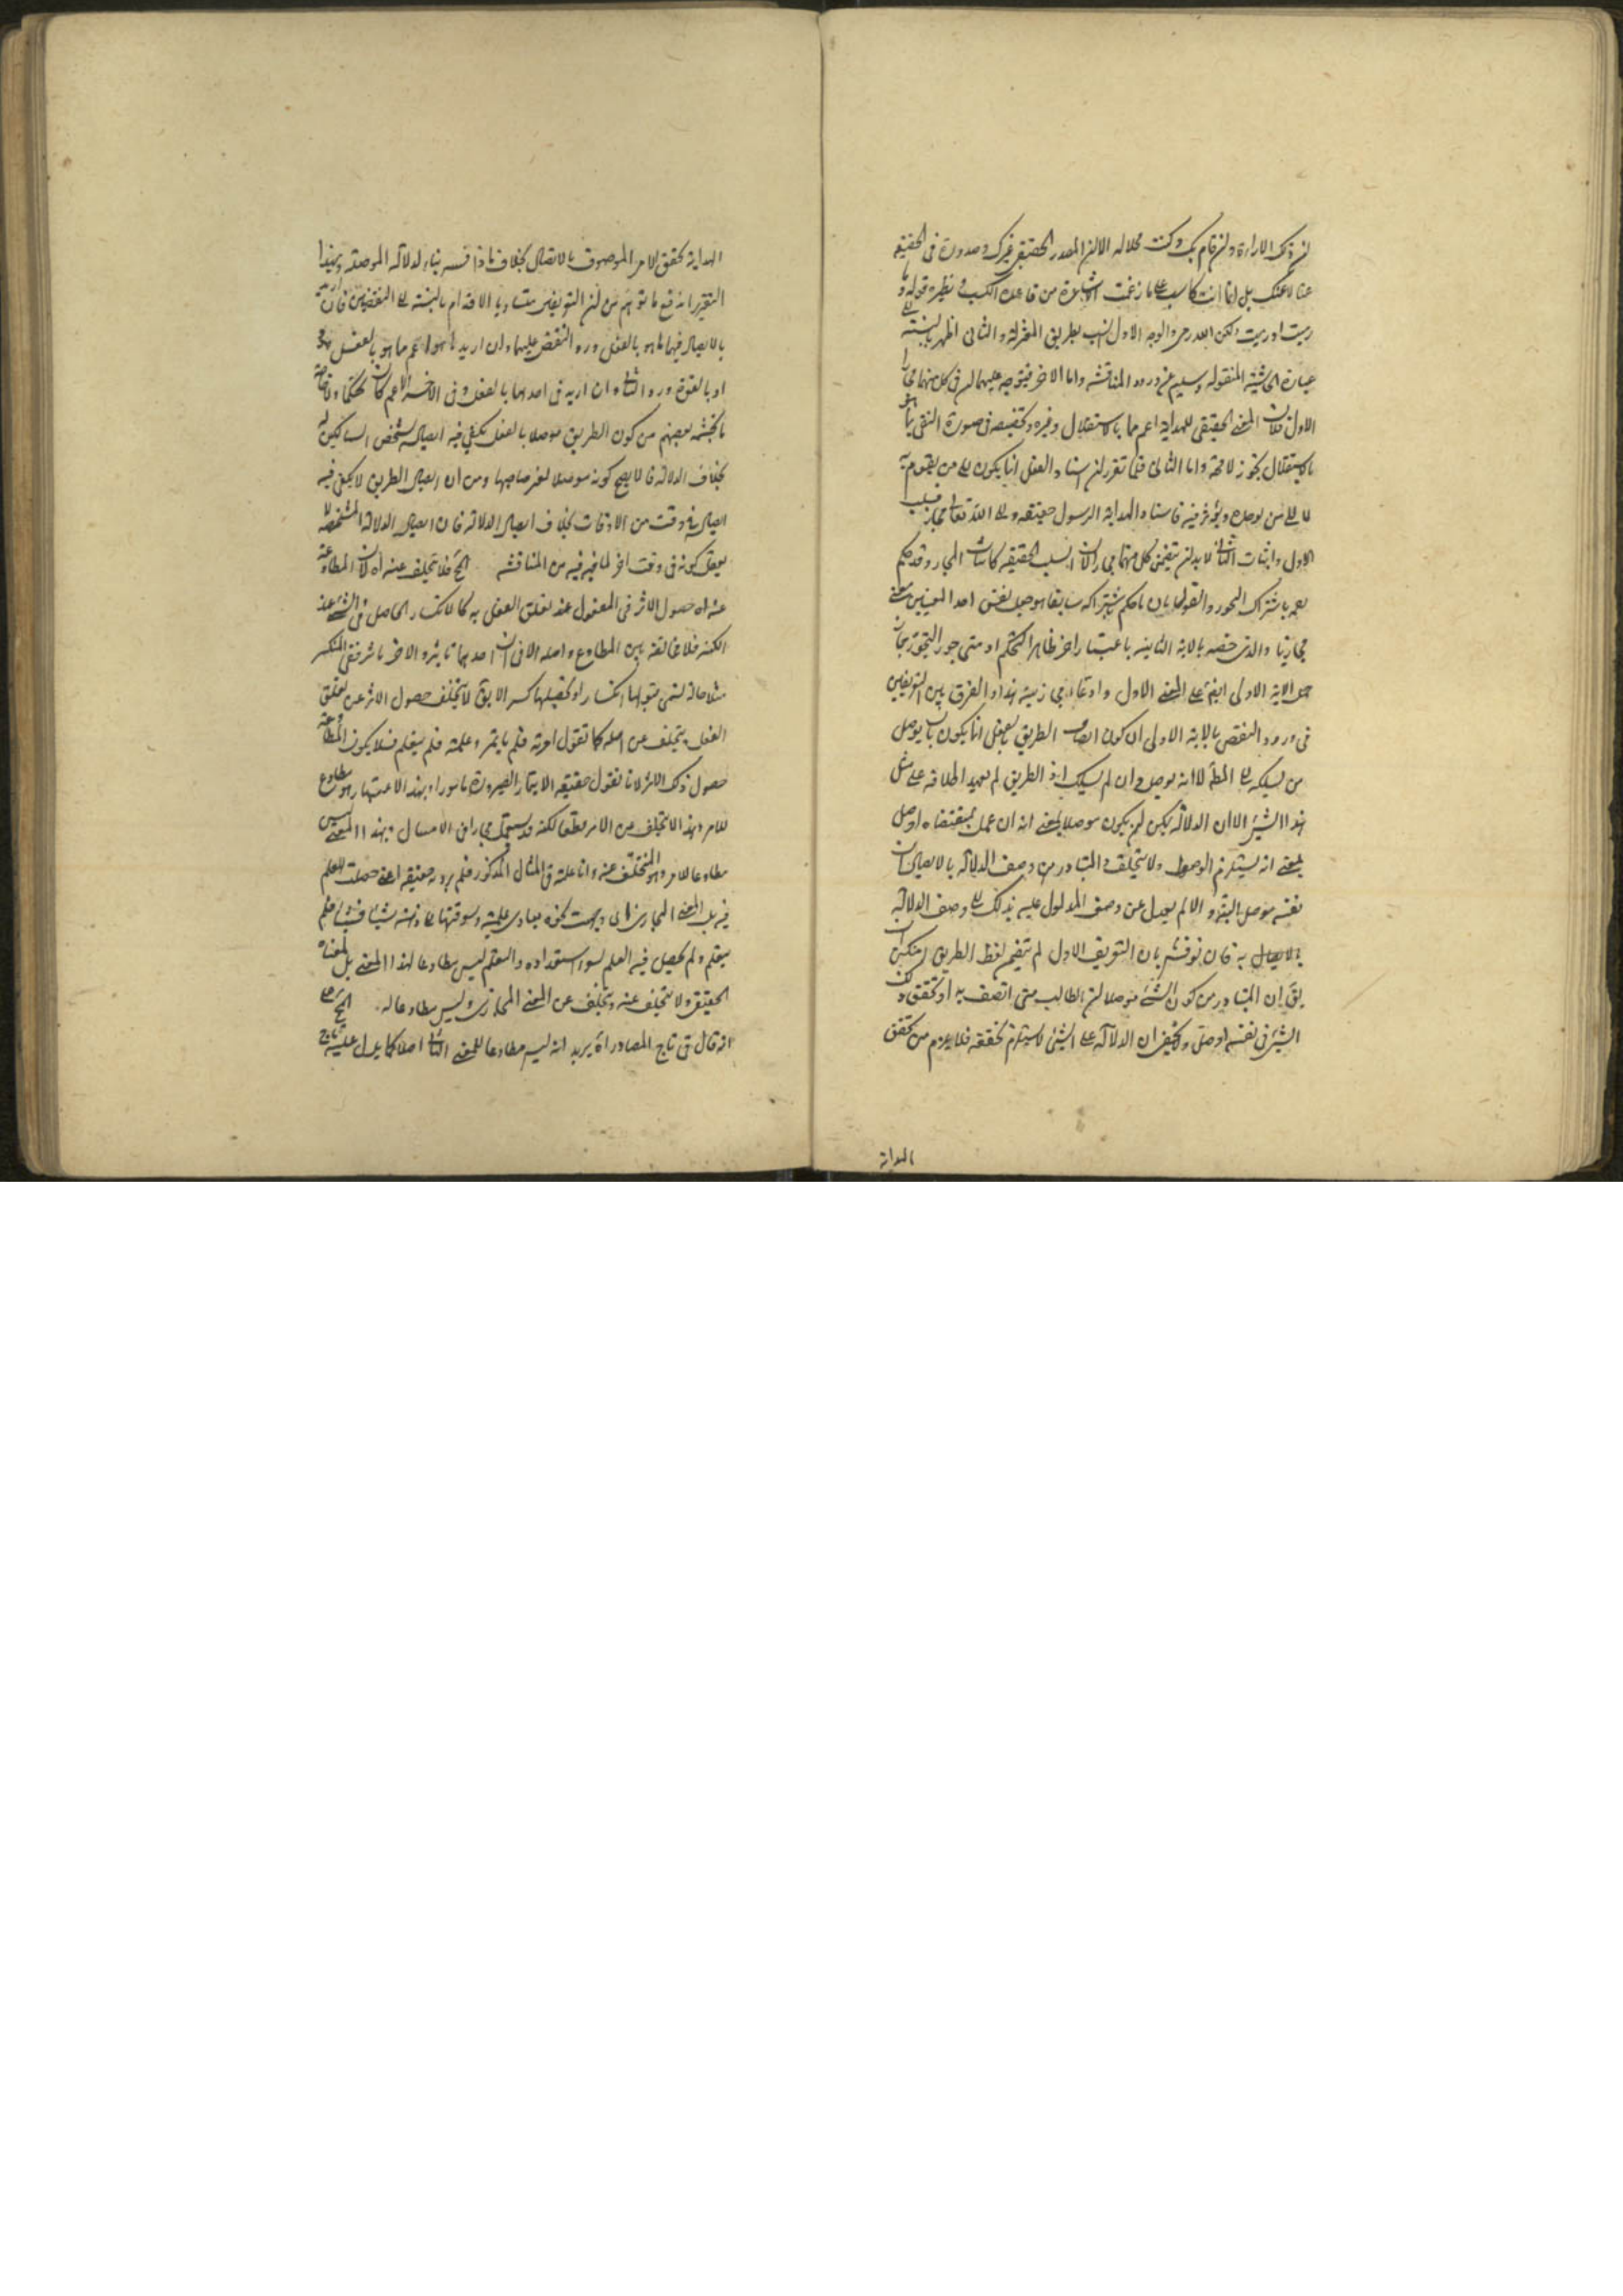 لان ذلك الاراءة وان قام بك وكنت محلا له الا ان المصدر الحقيقى غيرك وصدوره فى الحقيقة
عنا لا عنك بل انما انت كاسب على ما زعمت الاشاعرة من قاعدة الكسب ونظيره قوله وما
رميت اذ رميت ولكن الله رمى والوجه الاول انسب بطريق المعتزلة والثانى اظهر بالنسبة الى
عبارة الحاشية المنقولة وسليم عن ورود المناقشة واما الاخر فيتوجه عليهما ان فى كل منهما مجازا
الاول فلان المعنى الحقيقى للهداية اعم مما بالاستقلال وغيره وتخصيصه فى صورة النفى بما هو
بالاستقلال تجوز لا محة واما الثانى فلما تقرر ان اسناد الفعل انما يكون الى من يقوم به
لا الى من يوجده ويؤثر فيه فاسناد الهداية الى الرسول حقيقة والى الله تعالى مجاز فسلب
الاول واثبات الثانى لا بد ان يتضمن كل منهما مجازا لان سلب الحقيقة كاثبات المجاز وقد حكم
بعد باشتراك التجوز والقول بان ما حكم باشتراكه سابقا هو حمل نفس احد المعنيين معنى
مجازيا والذى خصه بالاية الثانية باعتبار اخر ظاهر التحكم او متى جوز التجوز بجاز
حمل الاية الاولى ايضا على المعنى الاول وادعاء مجازيته هذا والفرق بين التعريفين
فى ورود النقض بالاية الاولى ان كون ايصال الطريق بالفعل انما يكون بان يوصل
من يسلكه الى المط لا انه يوصل وان لم يسلك اذ الطريق لم يعهد اطلاقه على مثل
هذا الشئ الا ان الدلالة يمكن ان يكون موصلا بمعنى انه ان عمل بمقتضاه اوصل
بمعنى انه يستلزم الوصول ولا يتخلف والمتبادر من وصف الدلالة بالايصال ان
نفسه موصل البتة والا لم يعدل عن وصف المدلول عليه بذلك الى وصف الدلالة
بالايصال به فان نوقش بان التعريف الاول لم يتضمن لفظ الطريق امكن ان
يق ان المتبادر من كون الشئ موصلا ان الطالب متى اتصف به او تحقق ذلك
الشئ فى نفسه اوصل ولا يخفى ان الدلالة على الشئ لا يستلزم تحققه فلا يلزم من تحقق
الهداية
الهداية تحقق الامر الموصوف بالايصال بخلاف ما اذا فسر بناء لدلالة الموصلة وبهذا
التقرير اندفع ما توهم من ان التعريفين متساويا الاقدام بالنسبة الى النقضين فان اريد
بالايصال فيهما ما هو بالفعل ورد النقض عليهما وان اريد ما هو اعم مما هو بالفعل
او بالقوة ورد الثانى وان اريد فى احدهما بالفعل وفى الاخر الاعم كان تحكما
ما تجشمه بعضهم من كون الطريق موصلا بالفعل يكفى فيه ايصاله لشخص السالكين له
بخلاف الدلالة فلا يصح كونه موصلا لغير صاحبها ومن ان ايصال الطريق لا يكفى فيه
ايصاله فى وقت من الاوقات بخلاف ايصال الدلالة فان ايصال الدلالة المشخصة لا
يعقل كونه فى وقت اخر لما فيه من المناقشة الخ فلا يتخلف عنه اه لان المطاوعة
عبارة حصول الاثر فى المفعول عند تعلق الفعل به كالانكسار الحاصل فى الشئ عند
الكسر فلا مخالفة بين المطاوع واصله الا فى ان احدهما تاثير والاخر تاثر ففى المنكسر
مثلا حالة تسمى بقبولها انكسارا وتحصيلها كسر الا يق لا يتخلف حصول الاثر عن تعلق
الفعل يتخلف عن اصله كما تقول امرته فلم ياتمر وعلمته فلم يتعلم فلا يكون المطاوعة
حصول ذلك الاثر لانا نقول حقيقة الايتمار الصيرورة مامورا وبهذا الاعتبار هو مطاوع
للامر وبهذا لا يتخلف عن الامر مطلقا لكنه قد يستعمل مجازا فى الامتثال وبهذا المعنى ليس
مطاوعا للامر وهو المتخلف عنه واما علمته فى المثال المذكور فلم يرد به حقيقة اعنى حصلت العلم
فيه بل المعنى المجازى اى وجهت نحوه مبادى علمية وسوقتها الى ذهنه شيئا فشيئا فلم
يتعلم ولم يحصل فيه العلم لسوء استعداده والتعلم ليس مطاوعا لهذا المعنى بل لمعناه
الحقيقى ولا يتخلف عنه ويتخلف عن المعنى المجازى وليس مطاوعا له
انه قال فى تاج المصادر اه يريد انه ليس مطاوعا للمعنى الثانى اصلا كما يدل عليه